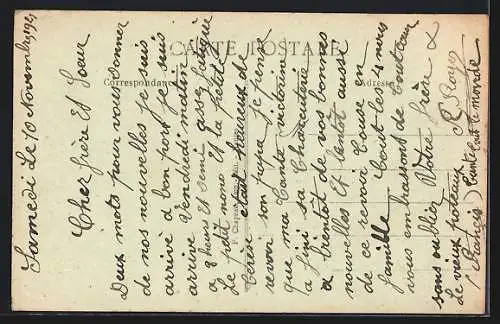 CARTE POSTALE
Correspondance
Adresse
Samedi Le 10 Novembre 1923
Cher frère Et Soeur
Deux mots pour vous donner
de nos nouvelles je suis
arrivé a bon port je suis
arrivé Vendredi matin
a heurs Et demi assez fatigué
Le petit nono Et la petite
étant heureux de
revoir son papa je pense
que ma Tante victorine
a fini sa Charcuterie
a bientôt de nos bonnes
nouvelles Et bientôt aussi
de ce revoir Tousse en
famille Tout les nous
vous embrassont de tout cœur
Votre frère
sans oublier
le vieux poteaux
tout le monde